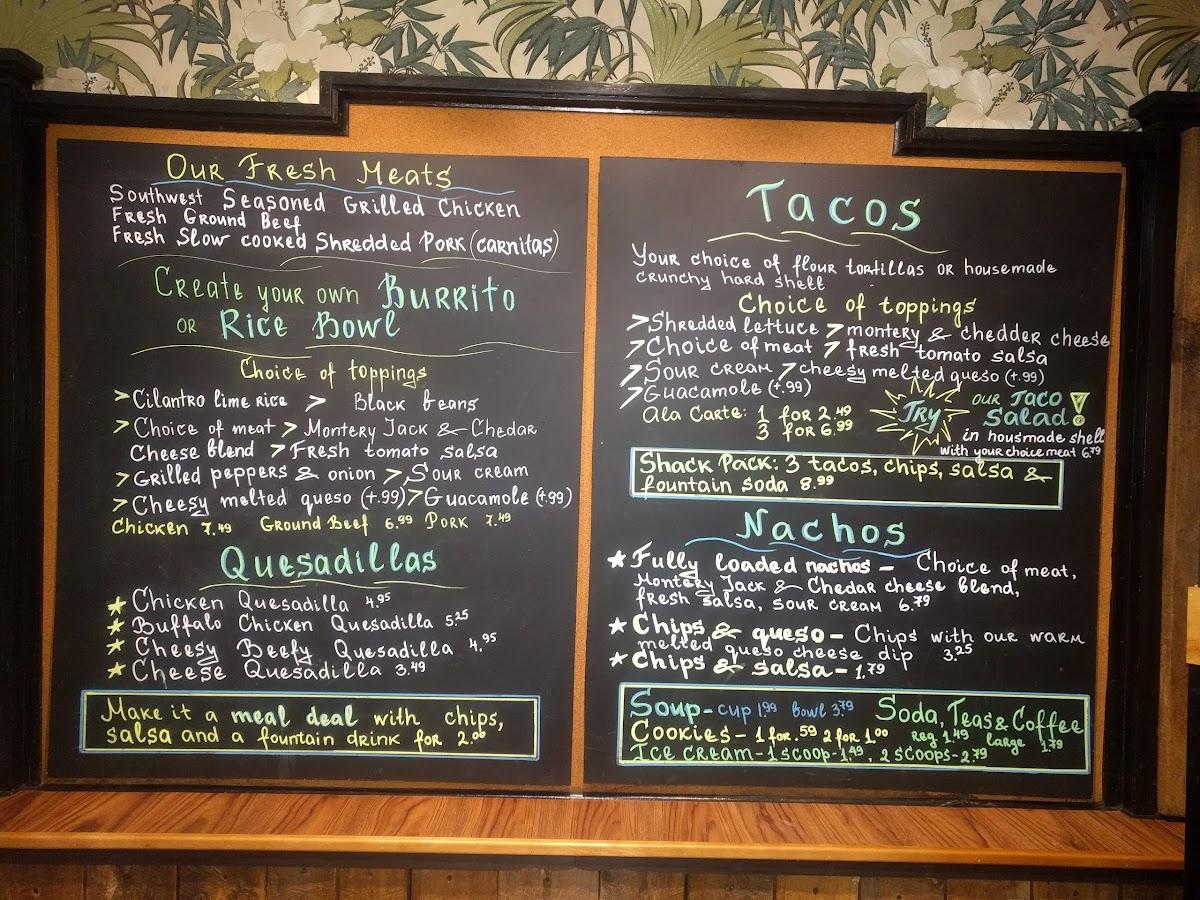 Our Fresh Meats
Southwest Seasoned Grilled Chicken
Fresh Ground Beef
Fresh Slow cooked Shredded Pork (carnitas)
Create your own Burrito
or Rice Bowl
Choice of toppings
> Cilantro lime rice > Black beans
> Choice of meat > Montery Jack & Chedar
Cheese blend > Fresh tomato salsa
> Grilled peppers & onion > Sour cream
> Cheesy melted queso (+.99) > Guacamole (+.99)
Chicken 7.49 Ground Beef 6.99 Pork 7.49
Quesadillas
★ Chicken Quesadilla 4.95
★ Buffalo Chicken Quesadilla 5.25
★ Cheesy Beefy Quesadilla 4.95
★ Cheese Quesadilla 3.49
Make it a meal deal with chips,
salsa and a fountain drink for 2.00
Tacos
Your choice of flour tortillas or housemade
crunchy hard shell
Choice of toppings
> Shredded lettuce > montery & chedder cheese
> Choice of meat > fresh tomato salsa
> Sour cream > cheesy melted queso (+.99)
> Guacamole (+.99)
Ala Carte: 1 for 2.49
3 for 6.99
Try our Taco
Salad!
in housmade shell
with your choice meat 6.79
Shack Pack: 3 tacos, chips, salsa &
fountain soda 8.99
Nachos
★ Fully loaded nachos - Choice of meat,
Montery Jack & Chedar cheese blend,
fresh salsa, sour cream 6.79
★ Chips & queso - Chips with our warm
melted queso cheese dip 3.25
★ Chips & salsa - 1.79
Soup - cup 1.99 bowl 3.79 Soda, Teas & Coffee
Cookies - 1 for .59 2 for 1.00 Reg 1.49 large 1.79
Ice cream - 1 scoop - 1.49, 2 scoops - 2.79